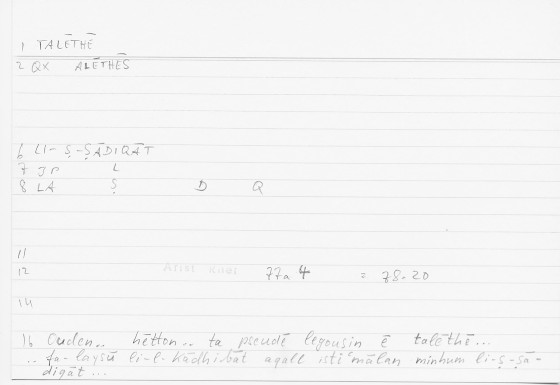 1 TALĒTHĒ
2 QX ALĒTHĒS
6 LI-Ṣ-ṢĀDIQĀT
7 JP L
8 LA Ṣ D Q
11
12 Arist Rhet 77a 4 = 78.20
14
16 Ouden.. hētton.. ta pseudē legousin ē talēthē...
.. fa-laysū li-l-kādhibāt aqall istiʿmālan minhum li-ṣ-ṣā-
diqāt...